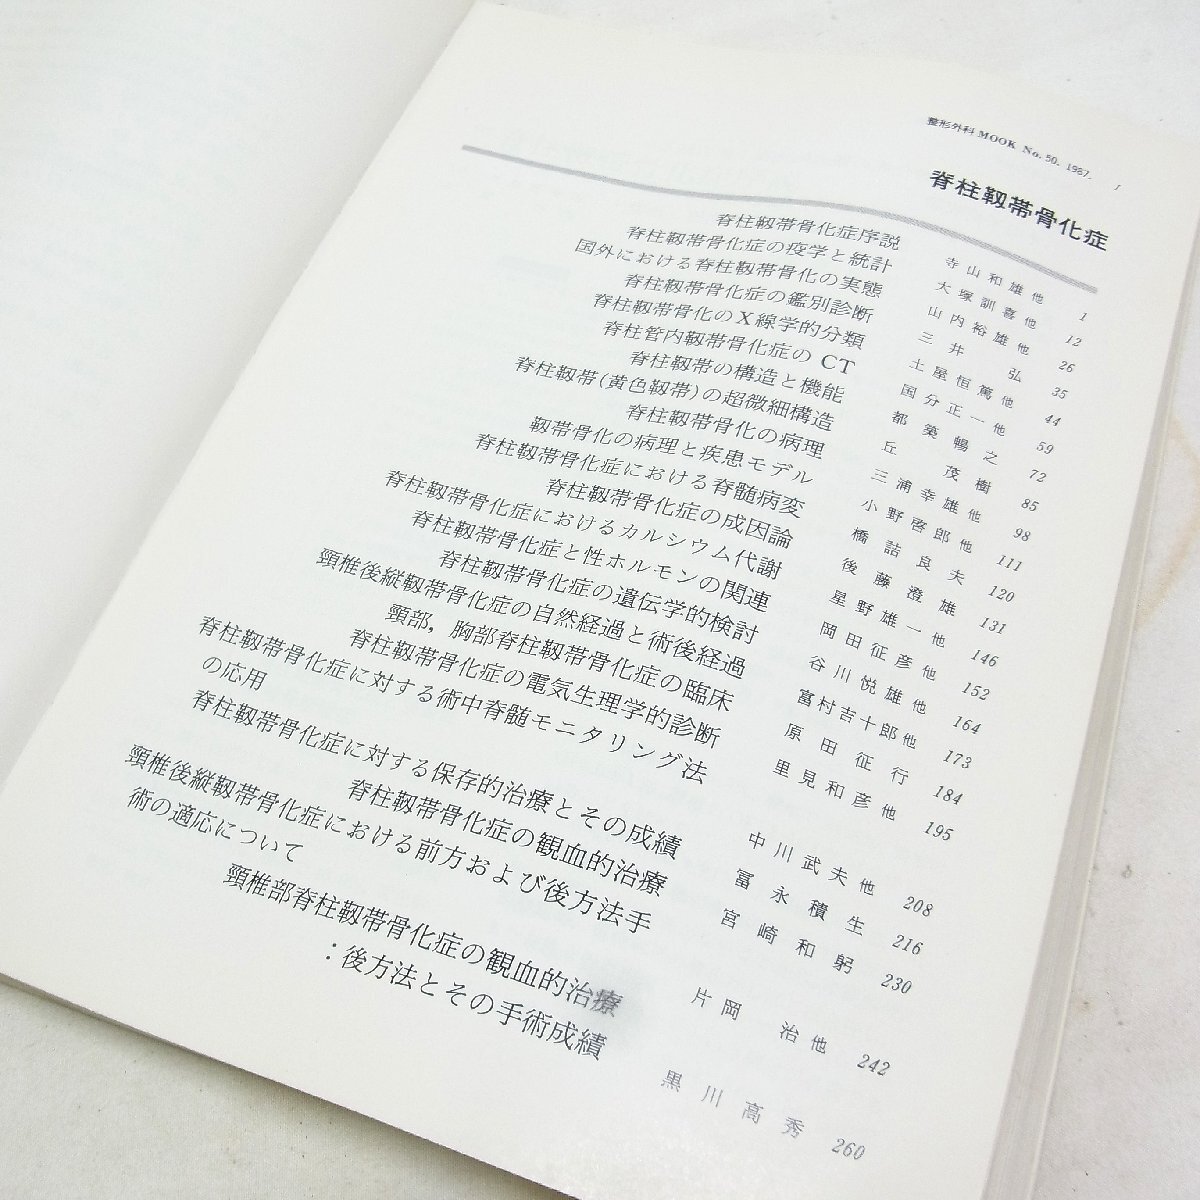 整形外科 MOOK No. 50. 1987. 1
脊柱靱帯骨化症
脊柱靱帯骨化症序説 寺山和雄他 1
脊柱靱帯骨化症の疫学と統計 大塚訓喜他 12
国外における脊柱靱帯骨化の実態 山内裕雄他 26
脊柱靱帯骨化症の鑑別診断 三井 弘 35
脊柱靱帯骨化のX線学的分類 土屋恒篤他 44
脊柱管内靱帯骨化症の CT 国分正一他 59
脊柱靱帯の構造と機能 都築暢之 72
脊柱靱帯(黄色靱帯)の超微細構造 丘 茂樹 85
脊柱靱帯骨化の病理 三浦幸雄他 98
靱帯骨化の病理と疾患モデル 小野啓郎他 111
脊柱靱帯骨化症における脊髄病変 橋詰良夫 120
脊柱靱帯骨化症の成因論 後藤澄雄 131
脊柱靱帯骨化症におけるカルシウム代謝 星野雄一他 146
脊柱靱帯骨化症と性ホルモンの関連 岡田征彦他 152
脊柱靱帯骨化症の遺伝学的検討 谷川悦雄他 164
頸椎後縦靱帯骨化症の自然経過と術後経過 富村吉十郎他 173
頸部，胸部脊柱靱帯骨化症の臨床 原田征行 184
脊柱靱帯骨化症の電気生理学的診断 里見和彦他 195
脊柱靱帯骨化症に対する術中脊髄モニタリング法
の応用 中川武夫他 208
脊柱靱帯骨化症に対する保存的治療とその成績 冨永積生 216
脊柱靱帯骨化症の観血的治療 宮崎和躬 230
頸椎後縦靱帯骨化症における前方および後方法手
術の適応について 片岡 治他 242
頸椎部脊柱靱帯骨化症の観血的治療
：後方法とその手術成績 黒川高秀 260